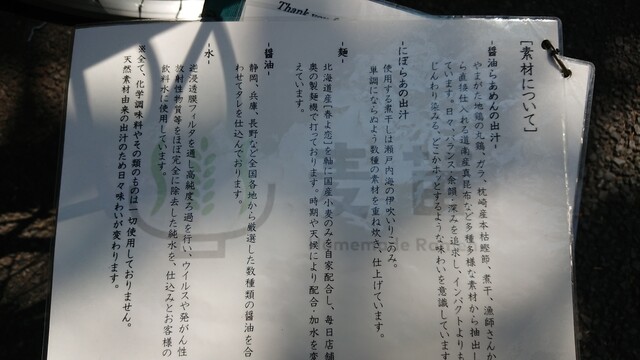 Thank
[素材について]
-醤油らあめんの出汁-
やまがた地鶏の丸鶏、ガラ、枕崎産本枯鰹節、煮干、漁師さんか
ら直接仕入れる道南産真昆布など多種多様な素材から抽出し
ています。日々、バランス・余韻・深みを追求し、インパクトより、
じんわり染みる、どこかホッとするような味わいを意識しています
-にぼらあの出汁-
使用する煮干しは瀬戸内海の伊吹いりこのみ。
単調にならぬよう数種の素材を重ね炊き、仕上げています。
-麺-
北海道産「春よ恋」を軸に国産小麦のみを自家配合し、毎日店舗
奥の製麺機で打っております。時期や天候により配合・加水を変
えています。
-醤油-
静岡、兵庫、長野など全国各地から厳選した数種類の醤油を合
わせてタレを仕込んでおります。
-水-
逆浸透膜フィルタを通し高純度ろ過を行い、ウイルスや発がん性
放射性物質等をほぼ完全に除去した純水を、仕込みとお客様の
飲料水に使用しています。
※全て、化学調味料やその類のものは一切使用しておりません。
天然素材由来の出汁のため日々味わいが変わります。
麦苗